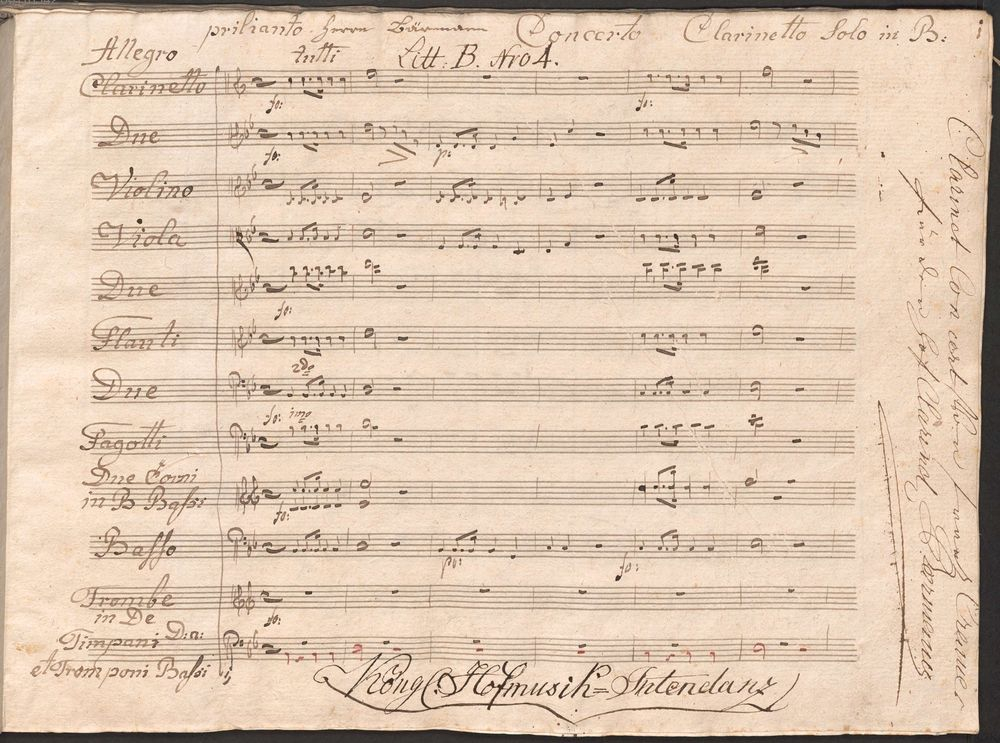 prilianto Herrn Bärmann Concerto Clarinetto Solo in B:
Allegro tutti Litt: B. Nro 4.
Clarinetto
fo: fo:
Due
fo: p:
Violino
Viola
Due
fo:
Flauti
2do
Due
fo: imo
Fagotti
Due Corni
in B Bassi
fo:
Basso
po: fo:
Trombe
in De
fo:
Timpani D: a:
et Tromponi Bassi
Köngl: Hofmusik=Intendanz
Clarinet Concert
für den Hof Clarinet Bärmann